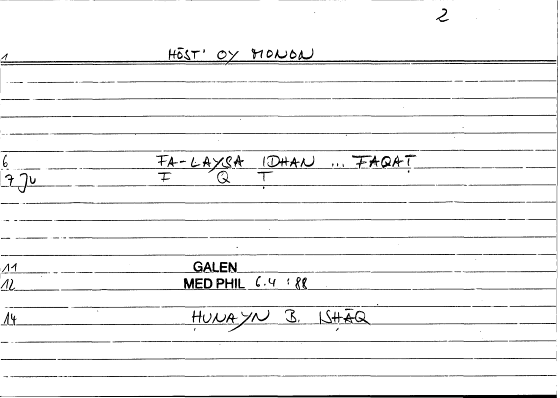 2
1 HŌST' OY MONON
6 FA-LAYSA IDHAN ... FAQAṬ
7 Ju F Q Ṭ
11 GALEN
12 MED PHIL 6.4 : 88
14 ḤUNAYN B. ISḤĀQ